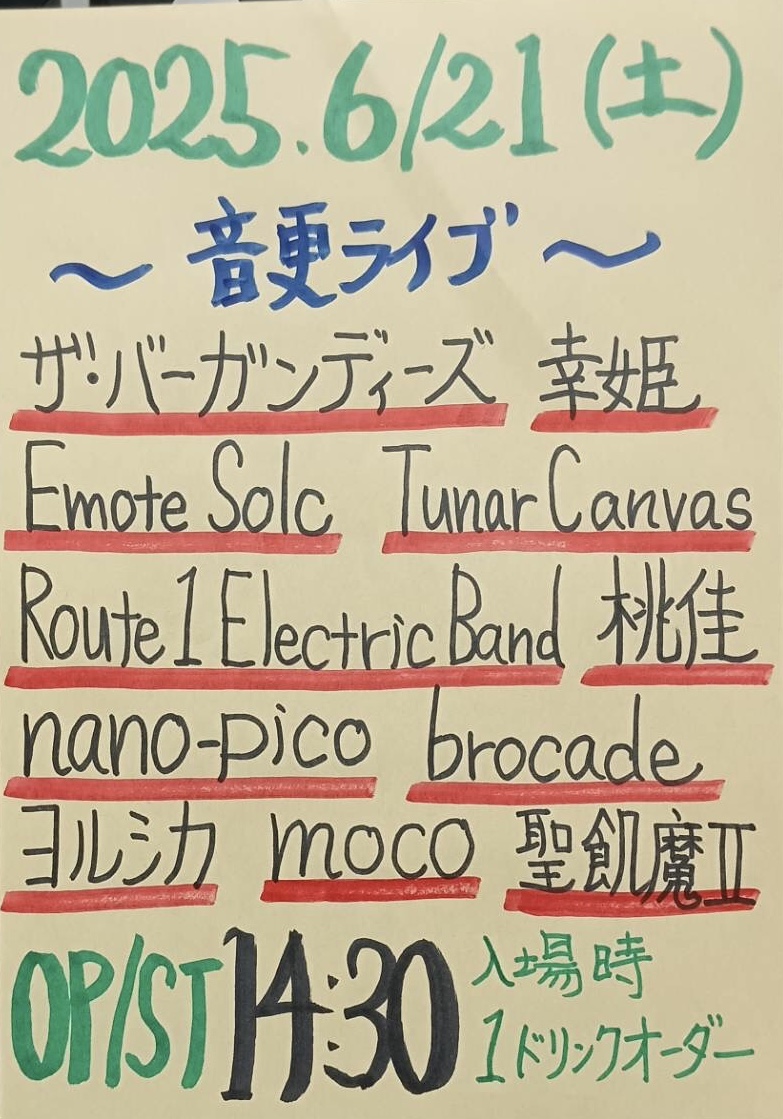 2025.6/21(土)
～音更ライブ～
ザ・バーガンディーズ 幸姫
Emote Solc Tunar Canvas
Route 1 Electric Band 桃佳
nano-pico brocade
ヨルシカ moco 聖飢魔II
OP/ST 14:30 入場時
1ドリンクオーダー